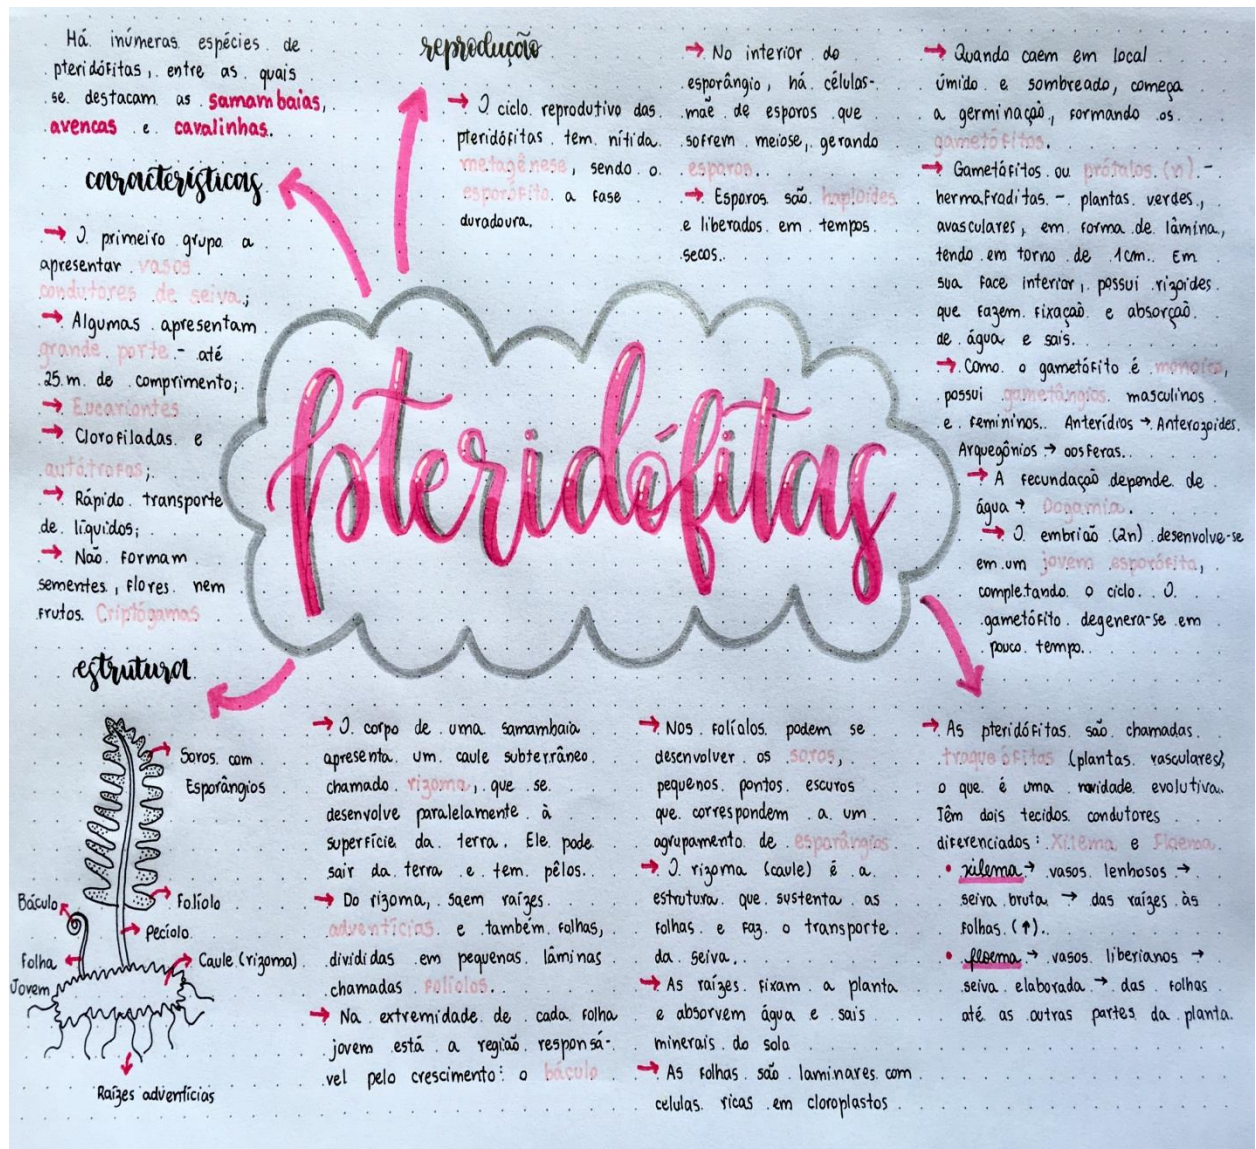 Há inúmeras espécies de
pteridófitas, entre as quais
se destacam as samambaias,
avencas e cavalinhas.
características
→ O primeiro grupo a
apresentar vasos
condutores de seiva;
→ Algumas apresentam
grande porte - até
25 m de comprimento;
→ Eucariontes
→ Clorofiladas e
autótrofas;
→ Rápido transporte
de líquidos;
→ Não formam
sementes, flores nem
frutos. Criptógamas
reprodução
→ O ciclo reprodutivo das
pteridófitas tem nítida
metagênese, sendo o
esporófito a fase
duradoura.
→ No interior do
esporângio, há células-
mãe de esporos que
sofrem meiose, gerando
esporos.
→ Esporos são haploides
e liberados em tempos
secos.
→ Quando caem em local
úmido e sombreado, começa
a germinação, formando os
gametófitos.
→ Gametófitos ou prótalos (n) -
hermafroditas - plantas verdes,
avasculares, em forma de lâmina,
tendo em torno de 1cm. Em
sua face interior, possui rizoides
que fazem fixação e absorção
de água e sais.
→ Como o gametófito é monoico,
possui gametângios masculinos
e femininos. Anterídios → Anterozoides.
Arquegônios → oosferas.
→ A fecundação depende de
água → Oogamia.
→ O embrião (2n) desenvolve-se
em um jovem esporófito,
completando o ciclo. O
gametófito degenera-se em
pouco tempo.
pteridófitas
estrutura
Soros com
Esporângios
Báculo
Folíolo
Pecíolo
Folha
Jovem
Caule (rizoma)
Raízes adventícias
→ O corpo de uma samambaia
apresenta um caule subterrâneo
chamado rizoma, que se
desenvolve paralelamente à
superfície da terra. Ele pode
sair da terra e tem pêlos.
→ Do rizoma, saem raízes
adventícias e também folhas,
divididas em pequenas lâminas
chamadas folíolos.
→ Na extremidade de cada folha
jovem está a região responsá-
vel pelo crescimento: o báculo
→ Nos folíolos podem se
desenvolver os soros,
pequenos pontos escuros
que correspondem a um
agrupamento de esporângios
→ O rizoma (caule) é a
estrutura que sustenta as
folhas e faz o transporte
da seiva.
→ As raízes fixam a planta
e absorvem água e sais
minerais do solo
→ As folhas são laminares com
celulas ricas em cloroplastos
→ As pteridófitas são chamadas
traqueófitas (plantas vasculares),
o que é uma novidade evolutiva.
Têm dois tecidos condutores
diferenciados: Xilema e Floema.
• xilema → vasos lenhosos →
seiva bruta → das raízes às
folhas (↑).
• floema → vasos liberianos →
seiva elaborada → das folhas
até as outras partes da planta.